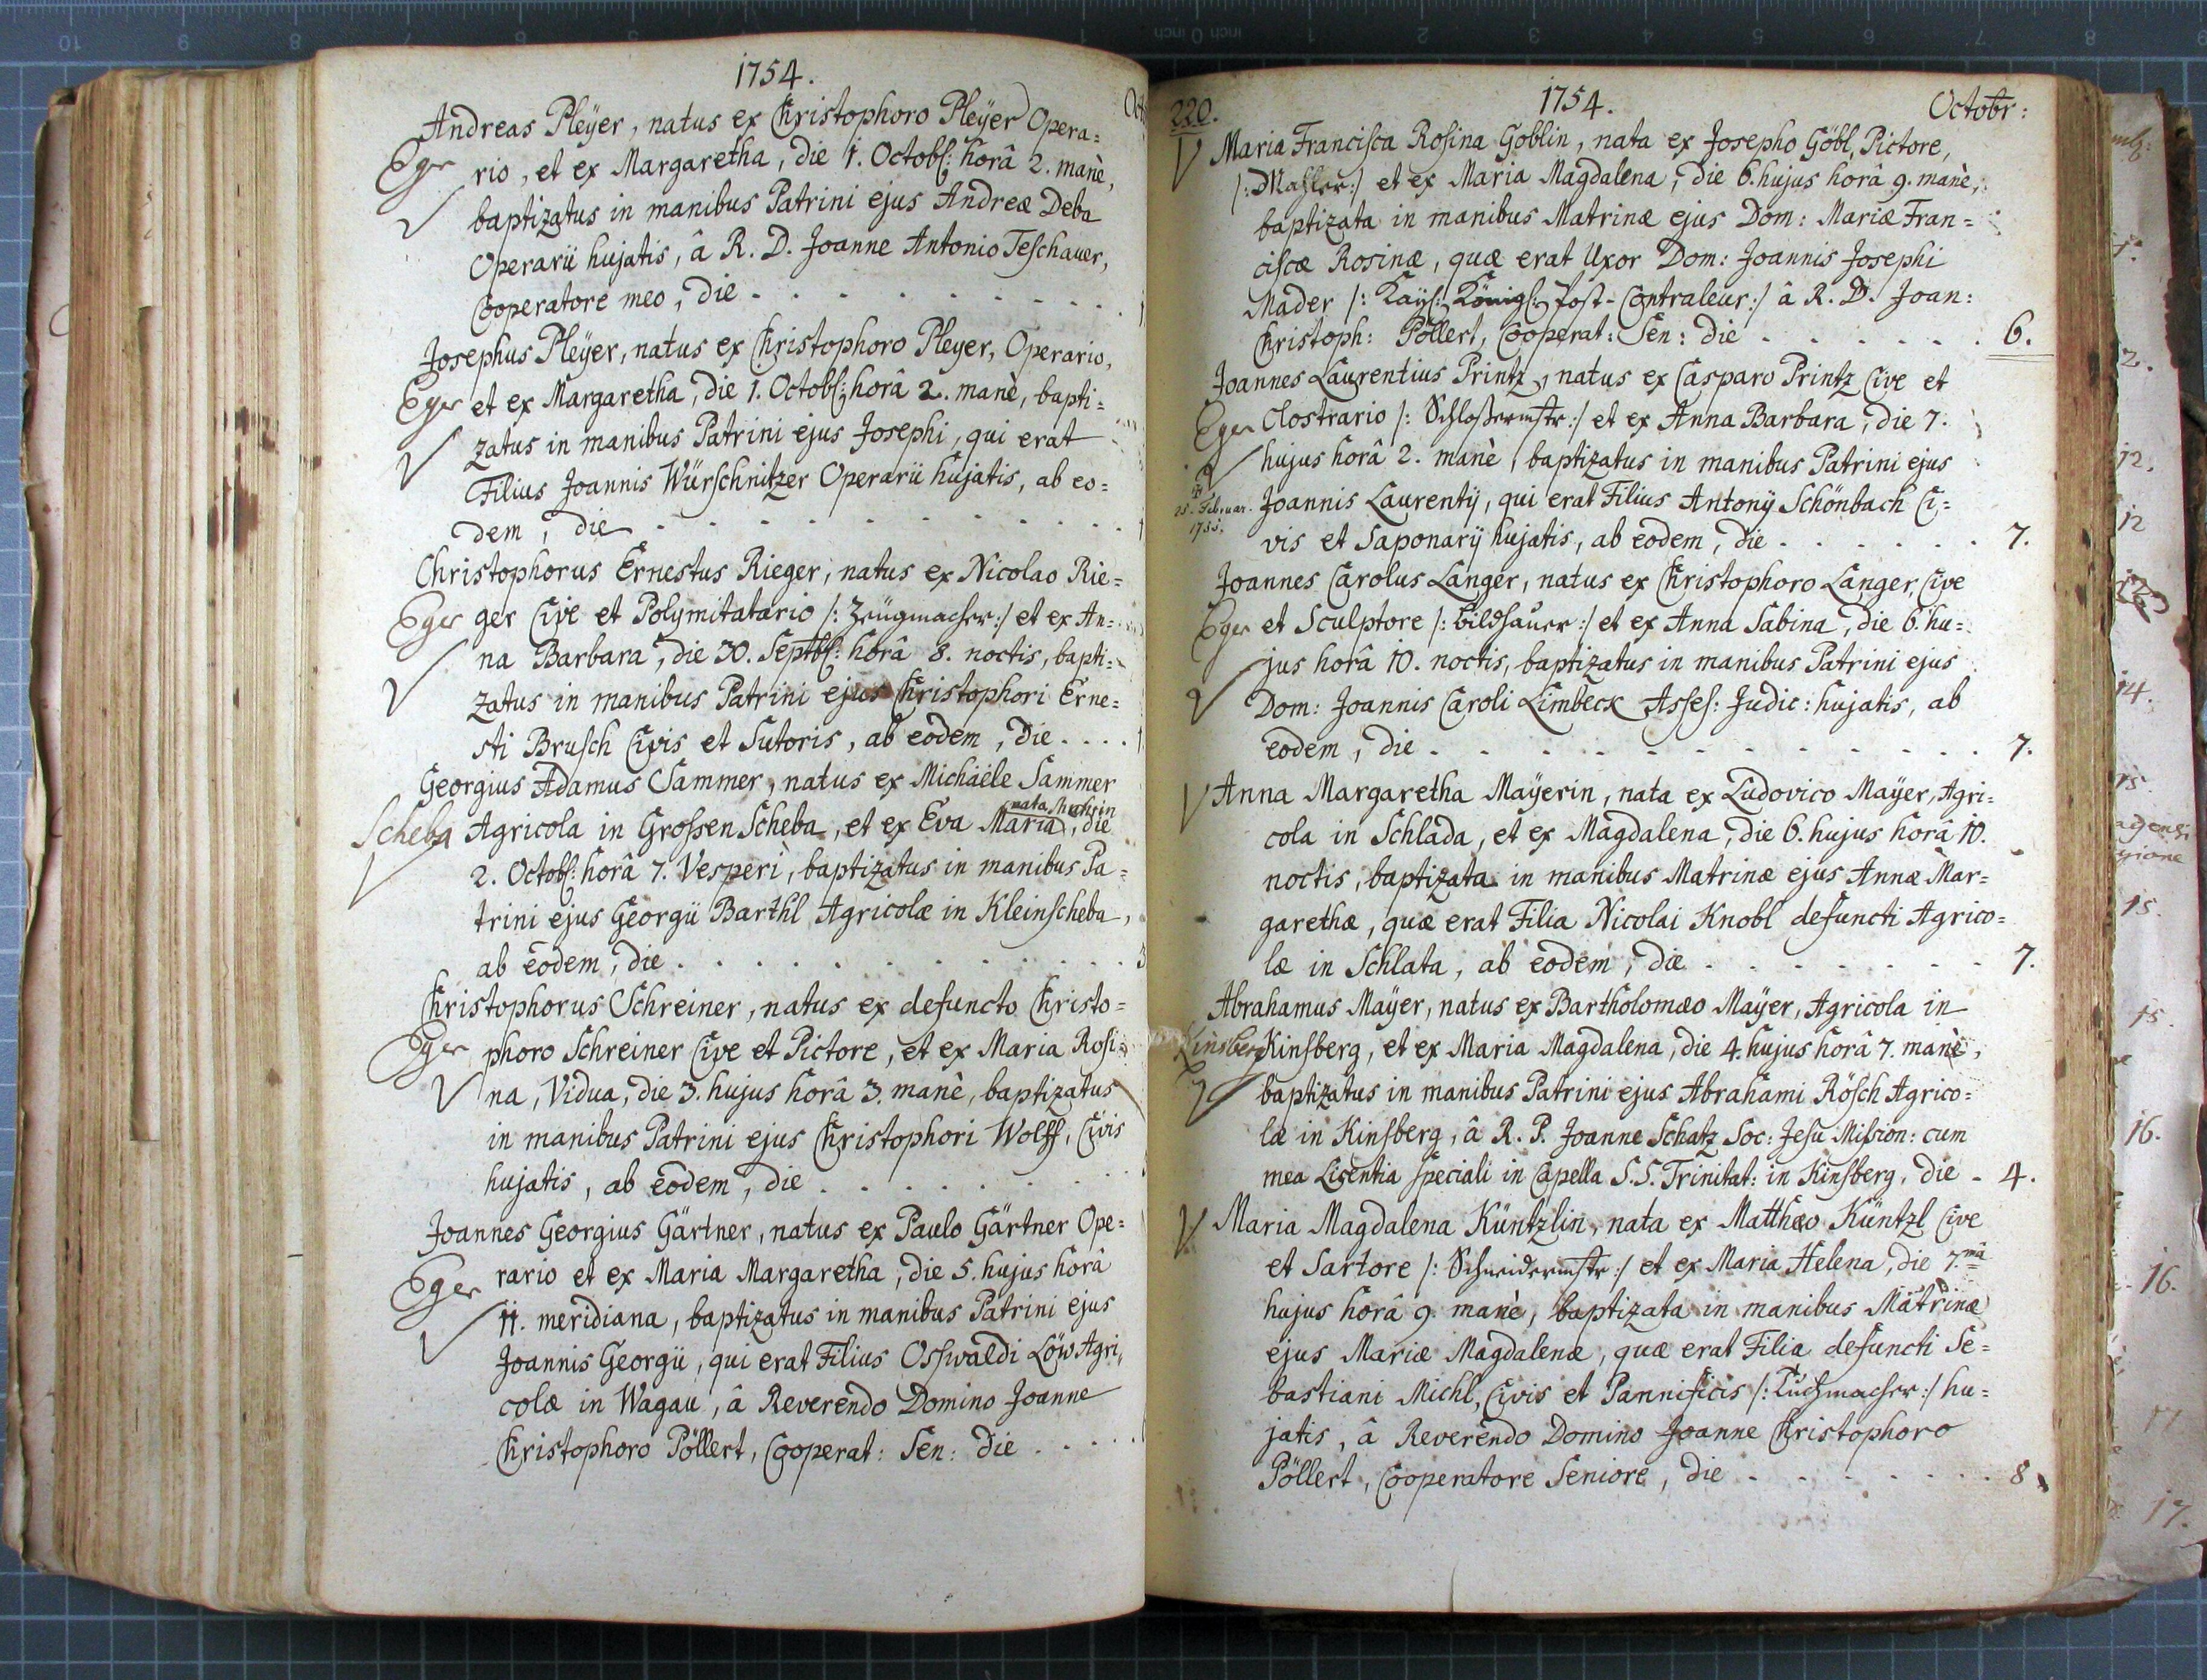 1754.
Andreas Pleÿer, natus ex Christophoro Pleÿer Opera=
Eger rio, et ex Margaretha, die 1. Octobl: horâ 2. manè,
baptizatus in manibus Patrini ejus Andreæ Deba
Operarii hujatis, â R. D. Joanne Antonio Teschauer,
Cooperatore meo, die
Josephus Pleÿer, natus ex Christophoro Pleyer, Operario,
Eger et ex Margaretha, die 1. Octobl: horâ 2. manè, bapti=
zatus in manibus Patrini ejus Josephi, qui erat
Filius Joannis Würschnitzer Operarii hujatis, ab eo=
dem, die
Christophorus Ernestus Rieger, natus ex Nicolao Rie=
Eger ger Cive et Polymitatario /: Zeügmacher :/ et ex An=
na Barbara, die 30. Septbl: horâ 8. noctis, bapti=
zatus in manibus Patrini ejus Christophori Erne=
sti Brusch Civis et Sutoris, ab eodem, die
Georgius Adamus Sammer, natus ex Michaële Sammer
nata
Scheba Agricola in Grossen Scheba, et ex Eva Maria, die
2. Octobl: horâ 7. Vesperi, baptizatus in manibus Pa=
trini ejus Georgii Barthl Agricolæ in Kleinscheba,
ab eodem, die 3
Christophorus Schreiner, natus ex defuncto Christo=
Eger phoro Schreiner Cive et Pictore, et ex Maria Rosi=
na, Vidua, die 3. hujus horâ 3. manè, baptizatus
in manibus Patrini ejus Christophori Wolff, Civis
hujatis, ab eodem, die
Joannes Georgius Gärtner, natus ex Paulo Gärtner Ope=
Eger rario et ex Maria Margaretha, die 5. hujus horâ
11. meridiana, baptizatus in manibus Patrini ejus
Joannis Georgii, qui erat Filius Osswaldi Löw Agri=
colæ in Wagau, â Reverendo Domino Joanne
Christophoro Pöllert, Cooperat: Sen: die
220. 1754. Octobr:
Maria Francisca Rosina Göblin, nata ex Josepho Göbl, Pictore,
/: Mahler :/ et ex Maria Magdalena, die 6. hujus horâ 9. manè,
baptizata in manibus Matrinæ ejus Dom: Mariæ Fran=
ciscæ Rosinæ, quæ erat Uxor Dom: Joannis Josephi
Mader /: Kaÿs: Königl: Post-Contraleur :/ â R. D. Joan:
Christoph: Pöllert, Cooperat: Sen: die 6.
Joannes Laurentius Printz, natus ex Casparo Printz Cive et
Eger Clostrario /: Schloßermstr :/ et ex Anna Barbara, die 7.
hujus horâ 2. manè, baptizatus in manibus Patrini ejus
25. Februar. Joannis Laurentÿ, qui erat Filius Antonÿ Schönbach Ci=
1755. vis et Saponarÿ hujatis, ab eodem, die 7.
Joannes Carolus Langer, natus ex Christophoro Langer, Cive
Eger et Sculptore /: Bildhauer :/ et ex Anna Sabina, die 6. hu=
jus horâ 10. noctis, baptizatus in manibus Patrini ejus
Dom: Joannis Caroli Limbeck Asses: Judic: hujatis, ab
eodem, die 7.
Anna Margaretha Maÿerin, nata ex Ludovico Maÿer, Agri=
cola in Schlada, et ex Magdalena, die 6. hujus horâ 10.
noctis, baptizata in manibus Matrinæ ejus Annæ Mar=
garethæ, quæ erat Filia Nicolai Knobl defuncti Agrico=
læ in Schlata, ab eodem, die 7.
Abrahamus Maÿer, natus ex Bartholomæo Maÿer, Agricola in
Kinsberg Kinsberg, et ex Maria Magdalena, die 4. hujus horâ 7. manè,
baptizatus in manibus Patrini ejus Abrahami Rösch Agrico=
læ in Kinsberg, â R. P. Joanne Schatz Soc: Jesu Mission: cum
mea Licentia speciali in Capella S.S. Trinitat: in Kinsberg, die 4.
Maria Magdalena Küntzlin, nata ex Matthæo Küntzl Cive
et Sartore /: Schneidermstr :/ et ex Maria Helena, die 7.mâ
hujus horâ 9. manè, baptizata in manibus Matrinæ
ejus Mariæ Magdalenæ, quæ erat Filia defuncti Se=
bastiani Michl, Civis et Pannificis /: Tuchmacher :/ hu=
jatis, â Reverendo Domino Joanne Christophoro
Pöllert, Cooperatore Seniore, die 8.
2.
12.
12
14.
15.
15.
16.
16.
17
17.